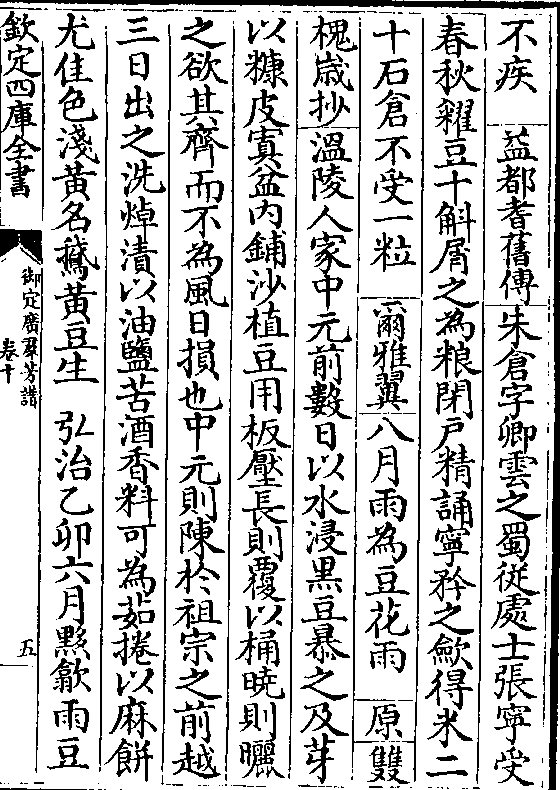 不疾　益都耆舊傳朱倉字卿雲之蜀從處士張寧受
春秋糴豆十斛屑之為粮閉戶精誦寧矜之斂得米二
十石倉不受一粒　爾雅翼八月雨為豆花雨　原雙
槐歳抄溫陵人家中元前數日以水浸黑豆暴之及芽
以糠皮寘盆内鋪沙植豆用板壓長則覆以桶曉則曬
之欲其齊而不為風日損也中元則陳於祖宗之前越
三日出之洗焯漬以油鹽苦酒香料可為茹捲以麻餅
尤佳色淺黄名鵞黄豆生　弘治乙卯六月黟歙雨豆
欽定四庫全書
御定廣羣芳譜
卷十
五